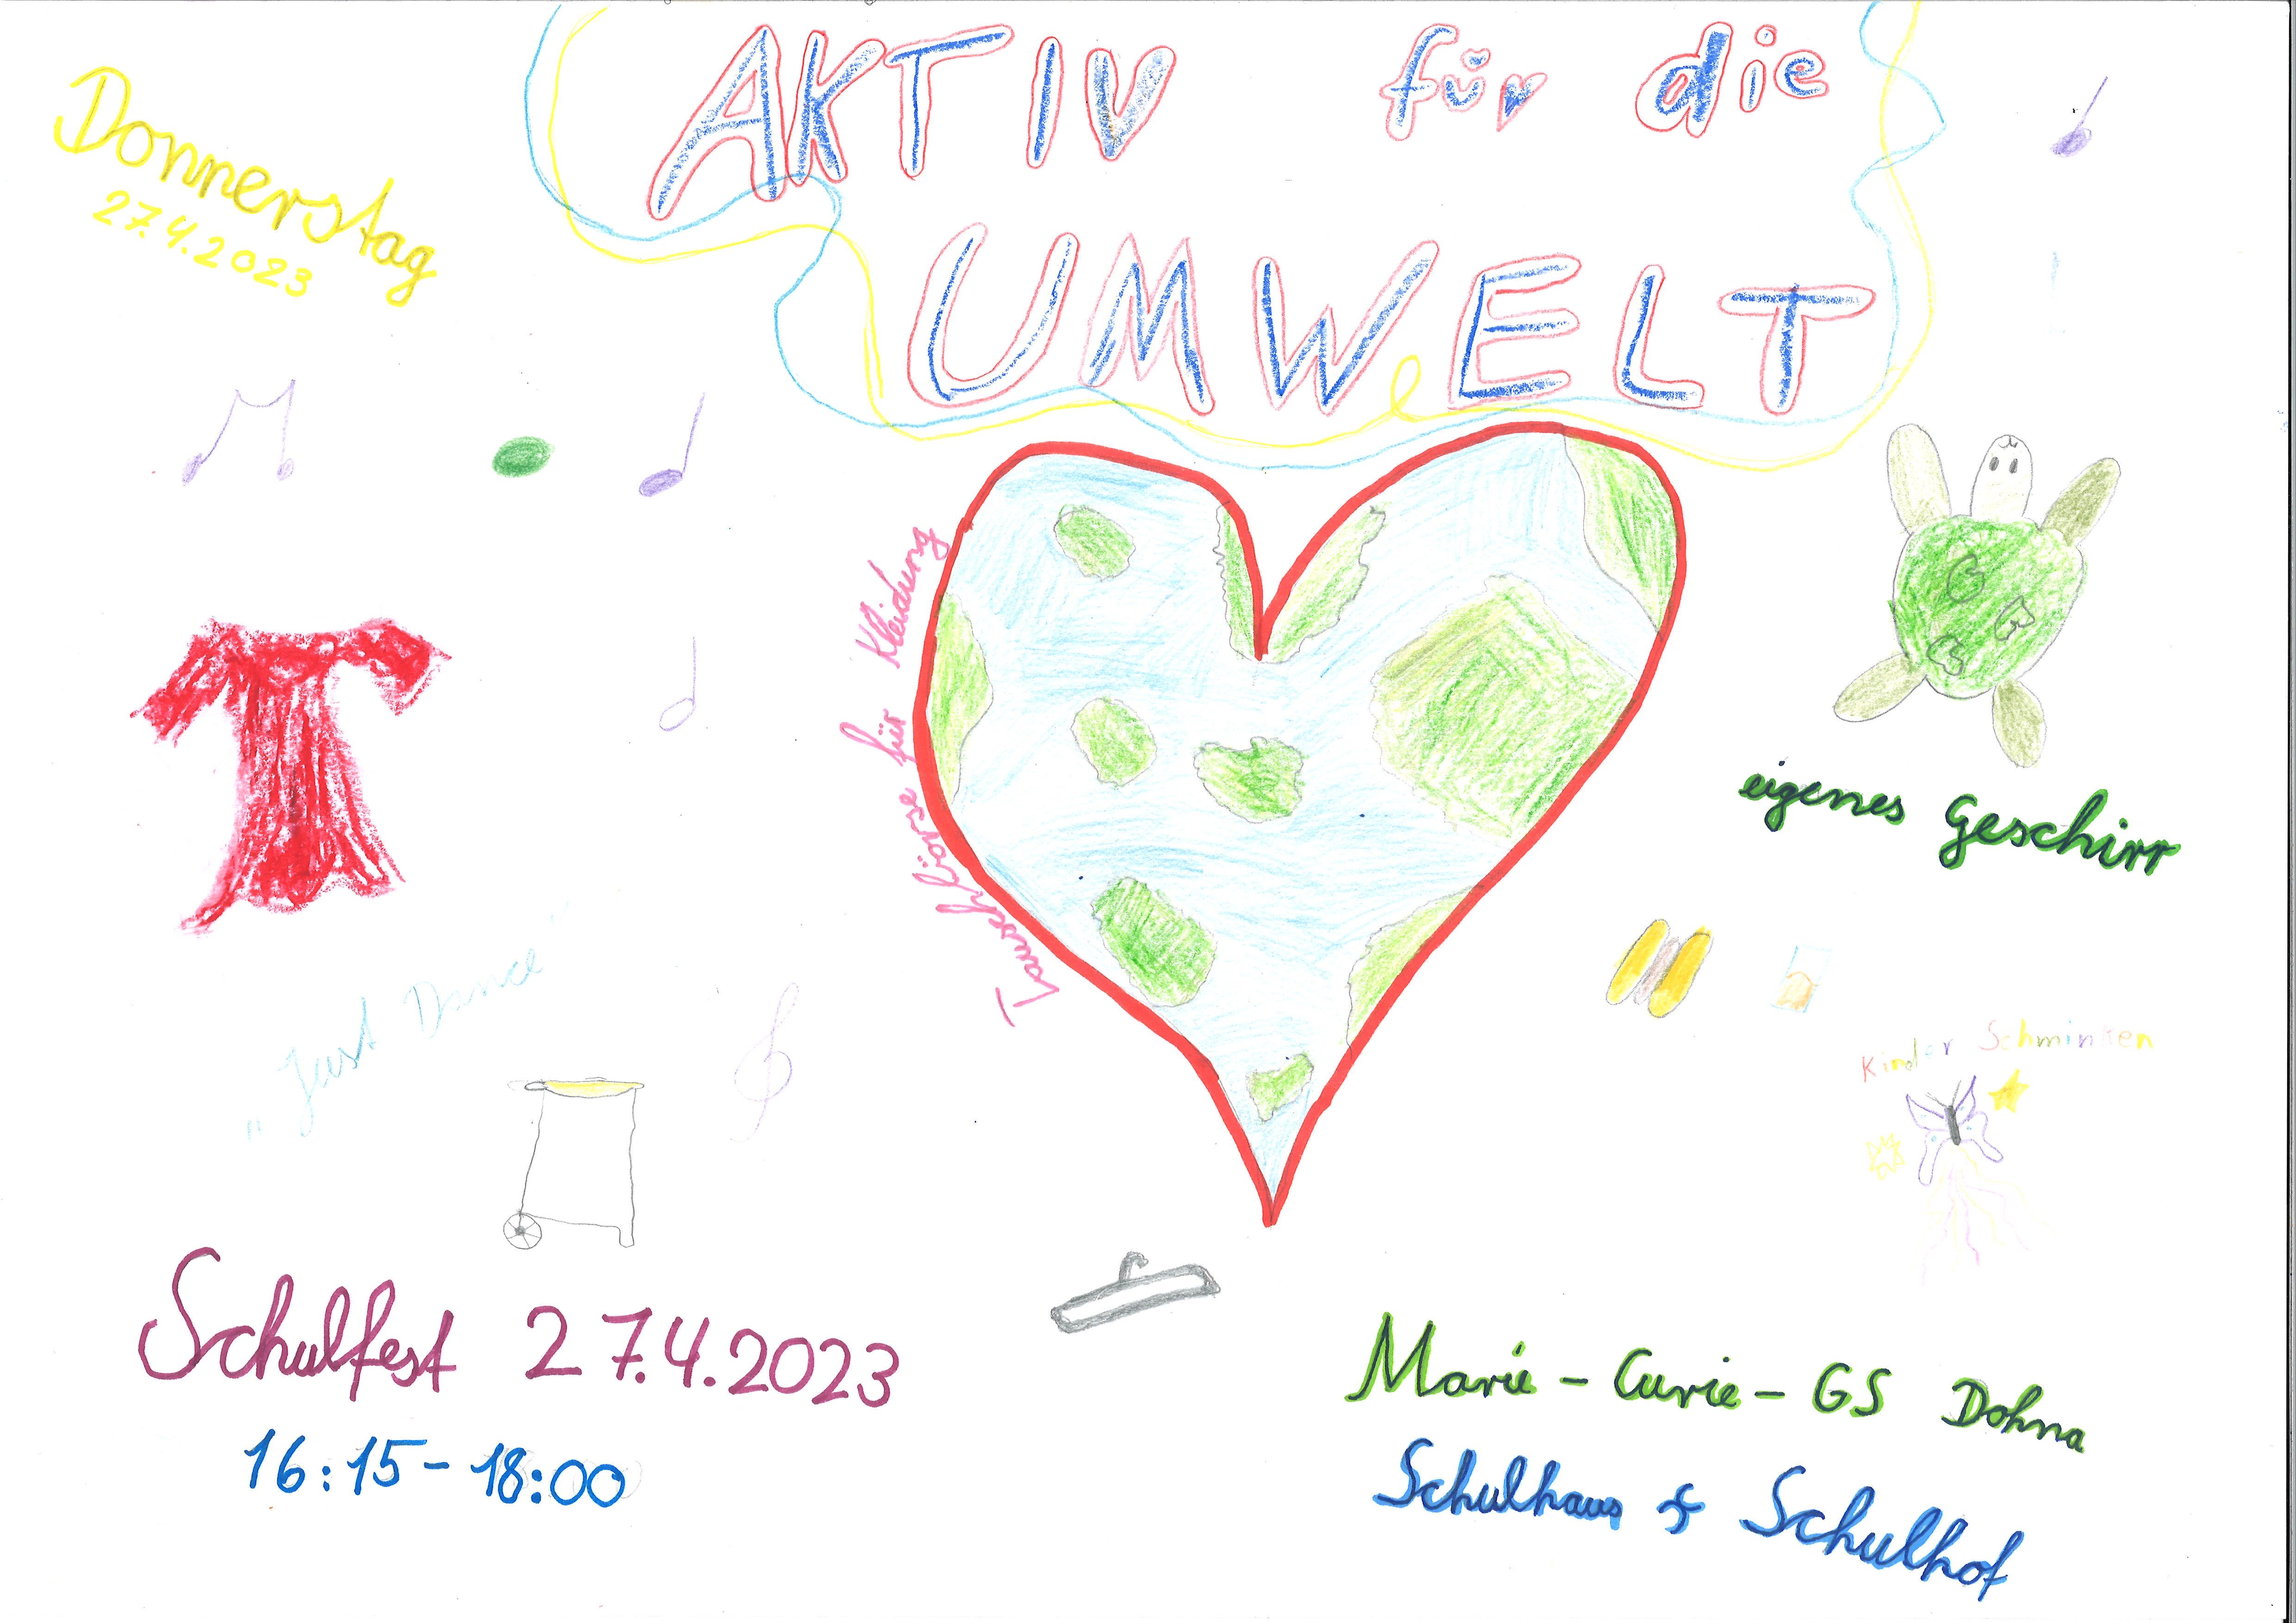 AKTIV für die
UMWELT
Donnerstag
27.4.2023
Tauschbörse für Kleidung
eigenes Geschirr
"Just Dance"
Kinder Schminken
Schulfest 27.4.2023
16:15-18:00
Marie-Curie-GS Dohna
Schulhaus & Schulhof